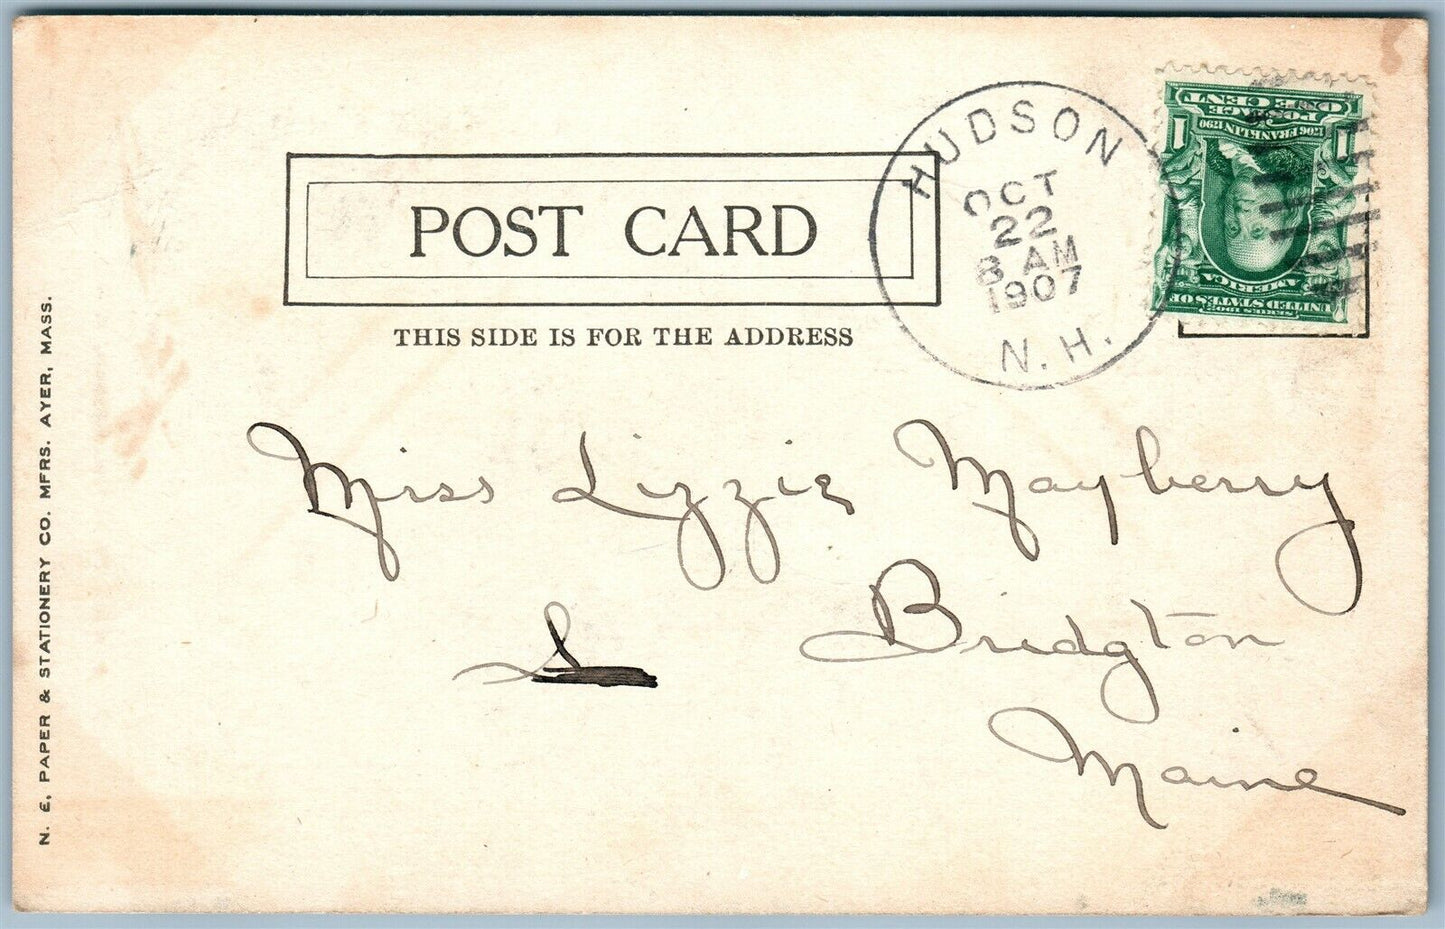 POST CARD
THIS SIDE IS FOR THE ADDRESS
HUDSON
OCT
22
8 AM
1907
N.H.
1 POSTAGE 1
ONE CENT
1706 FRANKLIN 1790
SERIES 1902
UNITED STATES OF
AMERICA
Miss Lizzie Mayberry
Bridgton
Maine
N. E. PAPER & STATIONERY CO. MFRS. AYER, MASS.